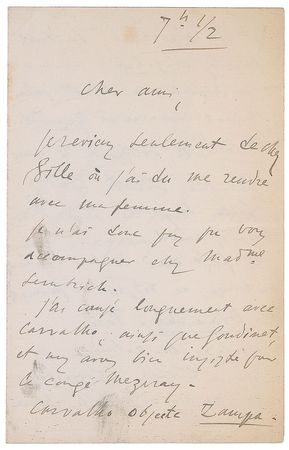 7h 1/2
cher ami,
je reviens seulement de chez
Gille où j'ai dû me rendre
avec ma femme.
je n'ai donc pas pu vous
accompagner chez Madme
Sembrich.
j'ai causé longuement avec
Carvalho, ainsi que Gondinet,
et nous avons bien insisté pour
le congé Mézeray.
Carvalho objecte Zampa.